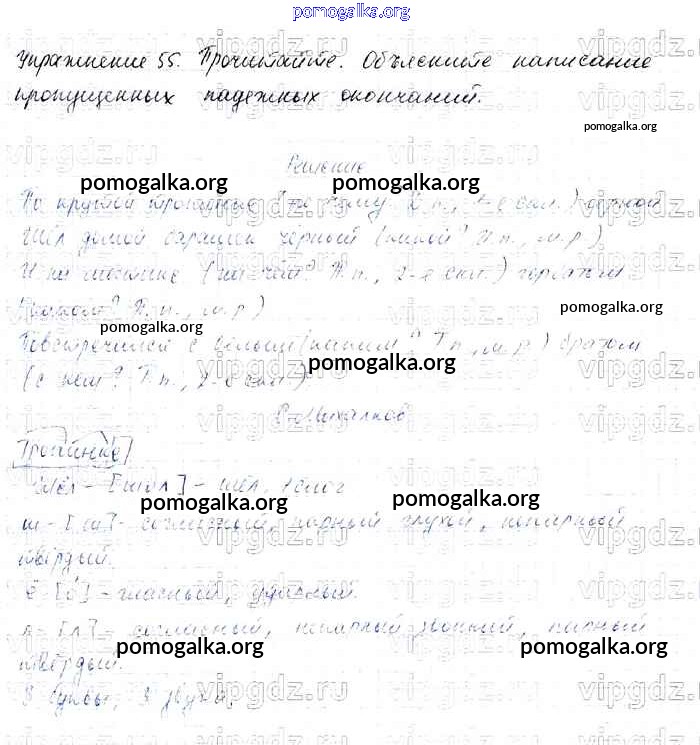 pomogalka.org
Упражнение 55. Прочитайте. Объясните написание
vipgdz.ru vipgdz.ru vipgdz.ru
пропущенных падежных окончаний.
pomogalka.org
Решение
pomogalka.org pomogalka.org
По крутой тропинке (по чему? Д.п., 1-е скл.) горной
Шёл домой барашек чёрный (какой? И.п., м.р.)
И на мостике (на чём? П.п., 2-е скл.) горбатом
pomogalka.org
(на каком? П.п., м.р.)
pomogalka.org
Повстречался с белым (каким? Т.п., м.р.) братом
pomogalka.org
(с кем? Т.п., 2-е скл.)
С. Михалков
Тропинке
Шёл – [шол] – шёл, 1 слог
pomogalka.org pomogalka.org
ш – [ш] – согласный, парный глухой, непарный
твёрдый.
ё [о́] – гласный, ударный.
л – [л] – согласный, непарный звонкий, парный
pomogalka.org pomogalka.org
твёрдый.
3 буквы, 3 звука.